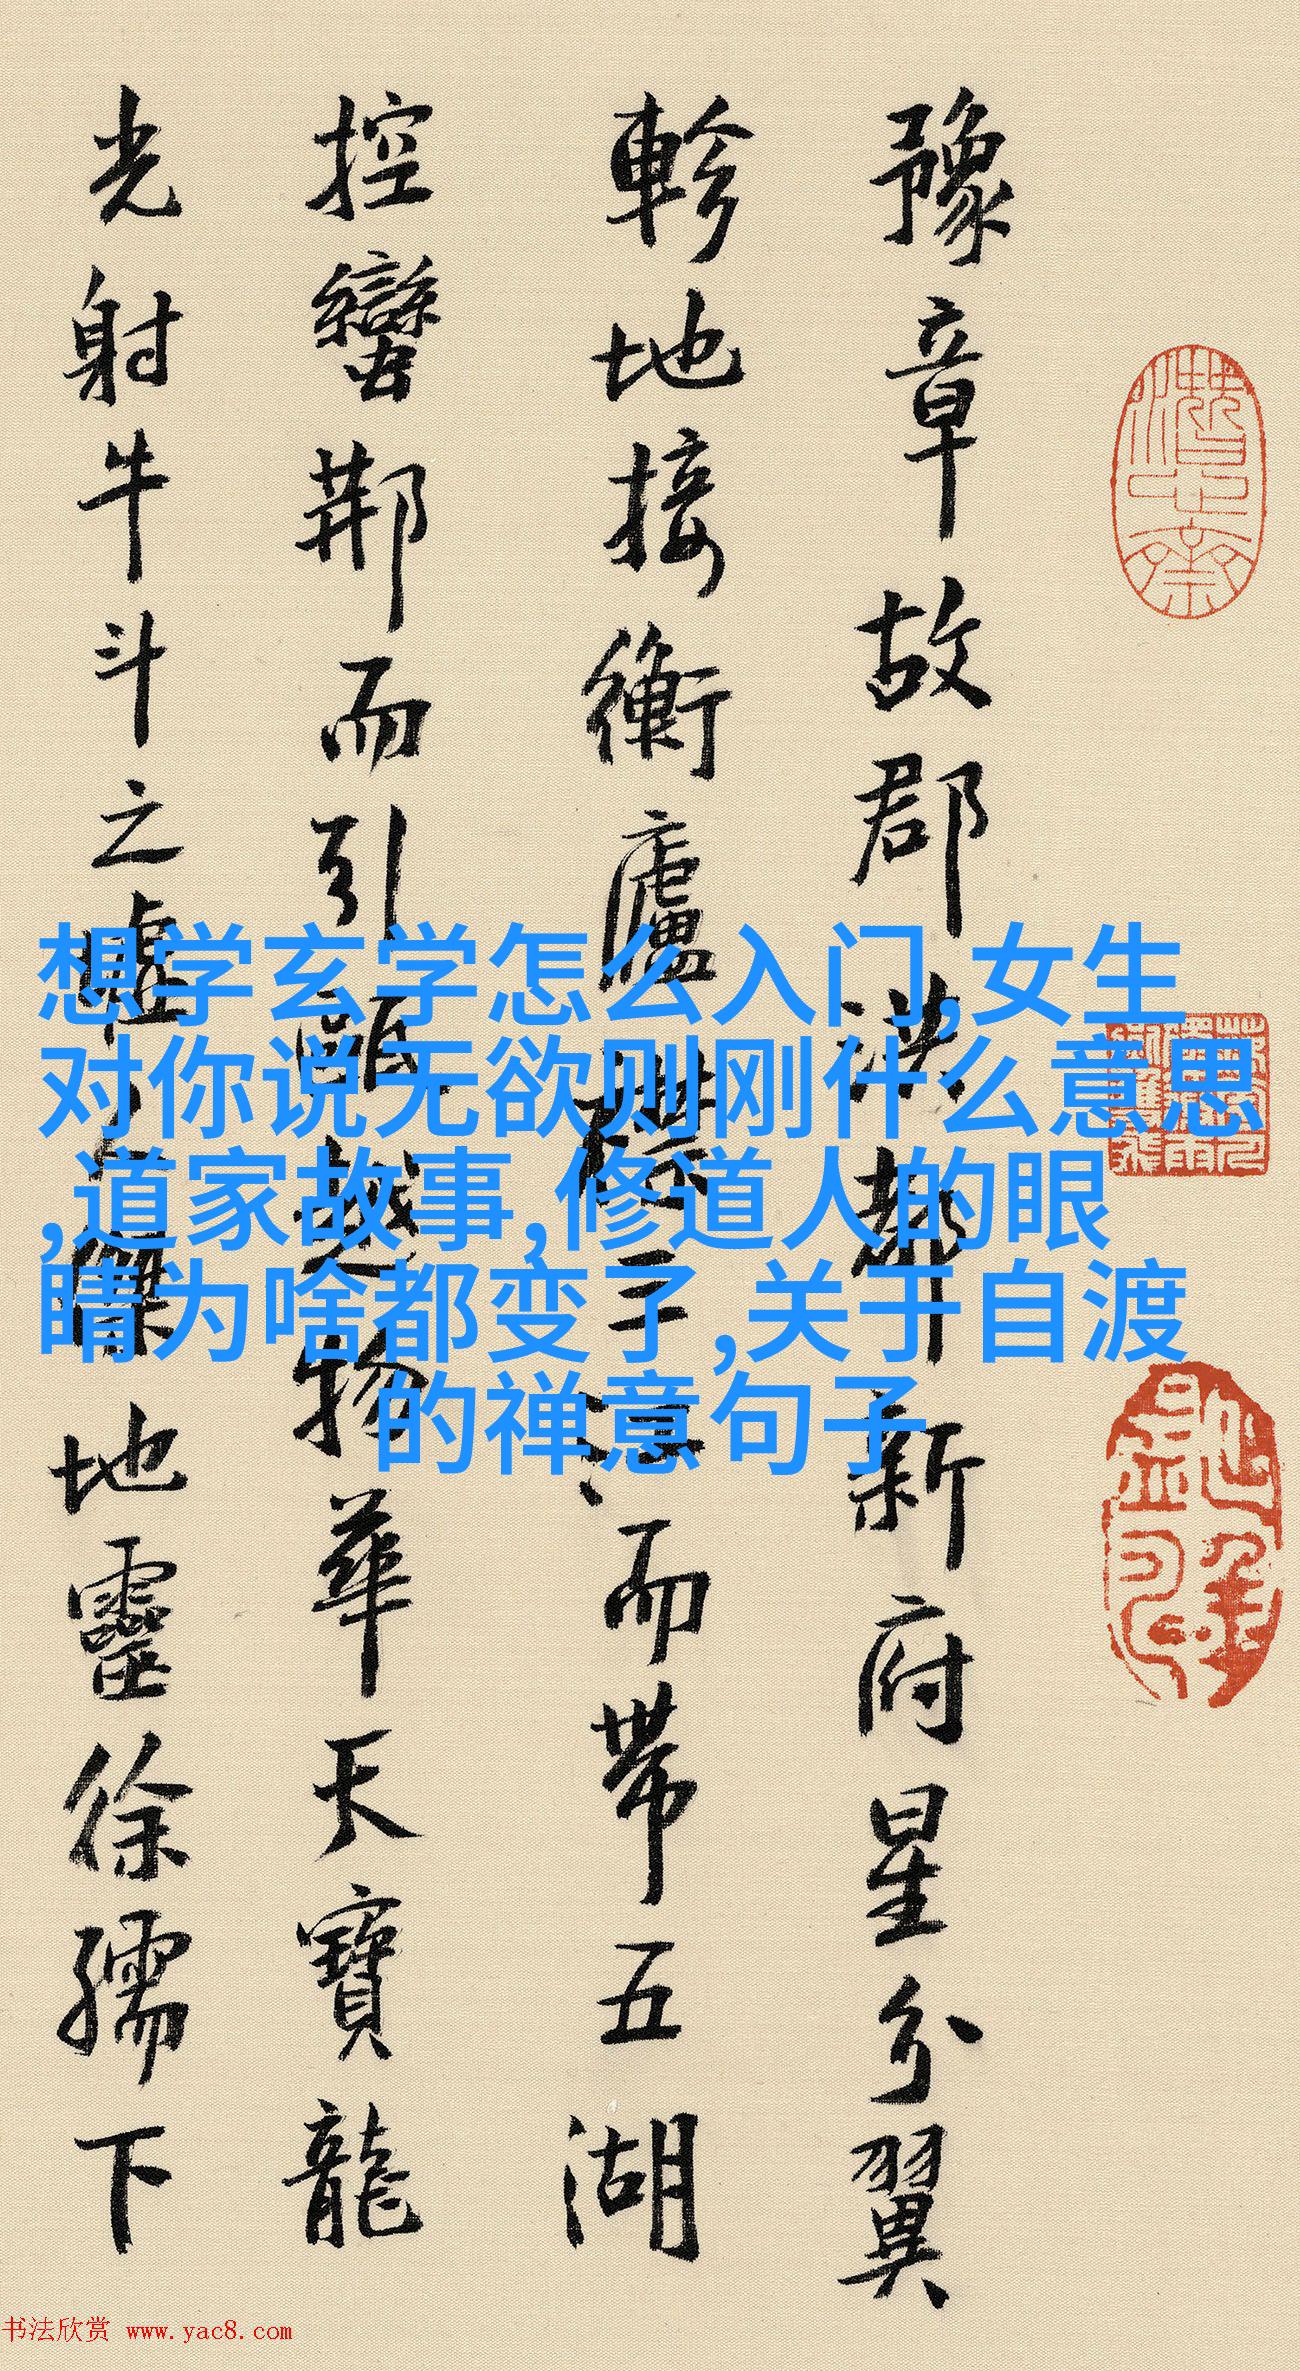 豫章故郡洪都新府星分翼
軫地接衡廬襟三江而帶五湖
控蠻荆而引甌越物華天寶龍
光射牛斗之墟人傑地靈徐孺下
想学玄学怎么入门,女生
对你说无欲则刚什么意思
,道家故事,修道人的眼
睛为啥都变了,关于自渡
的禅意句子
书法欣赏 www.yac8.com